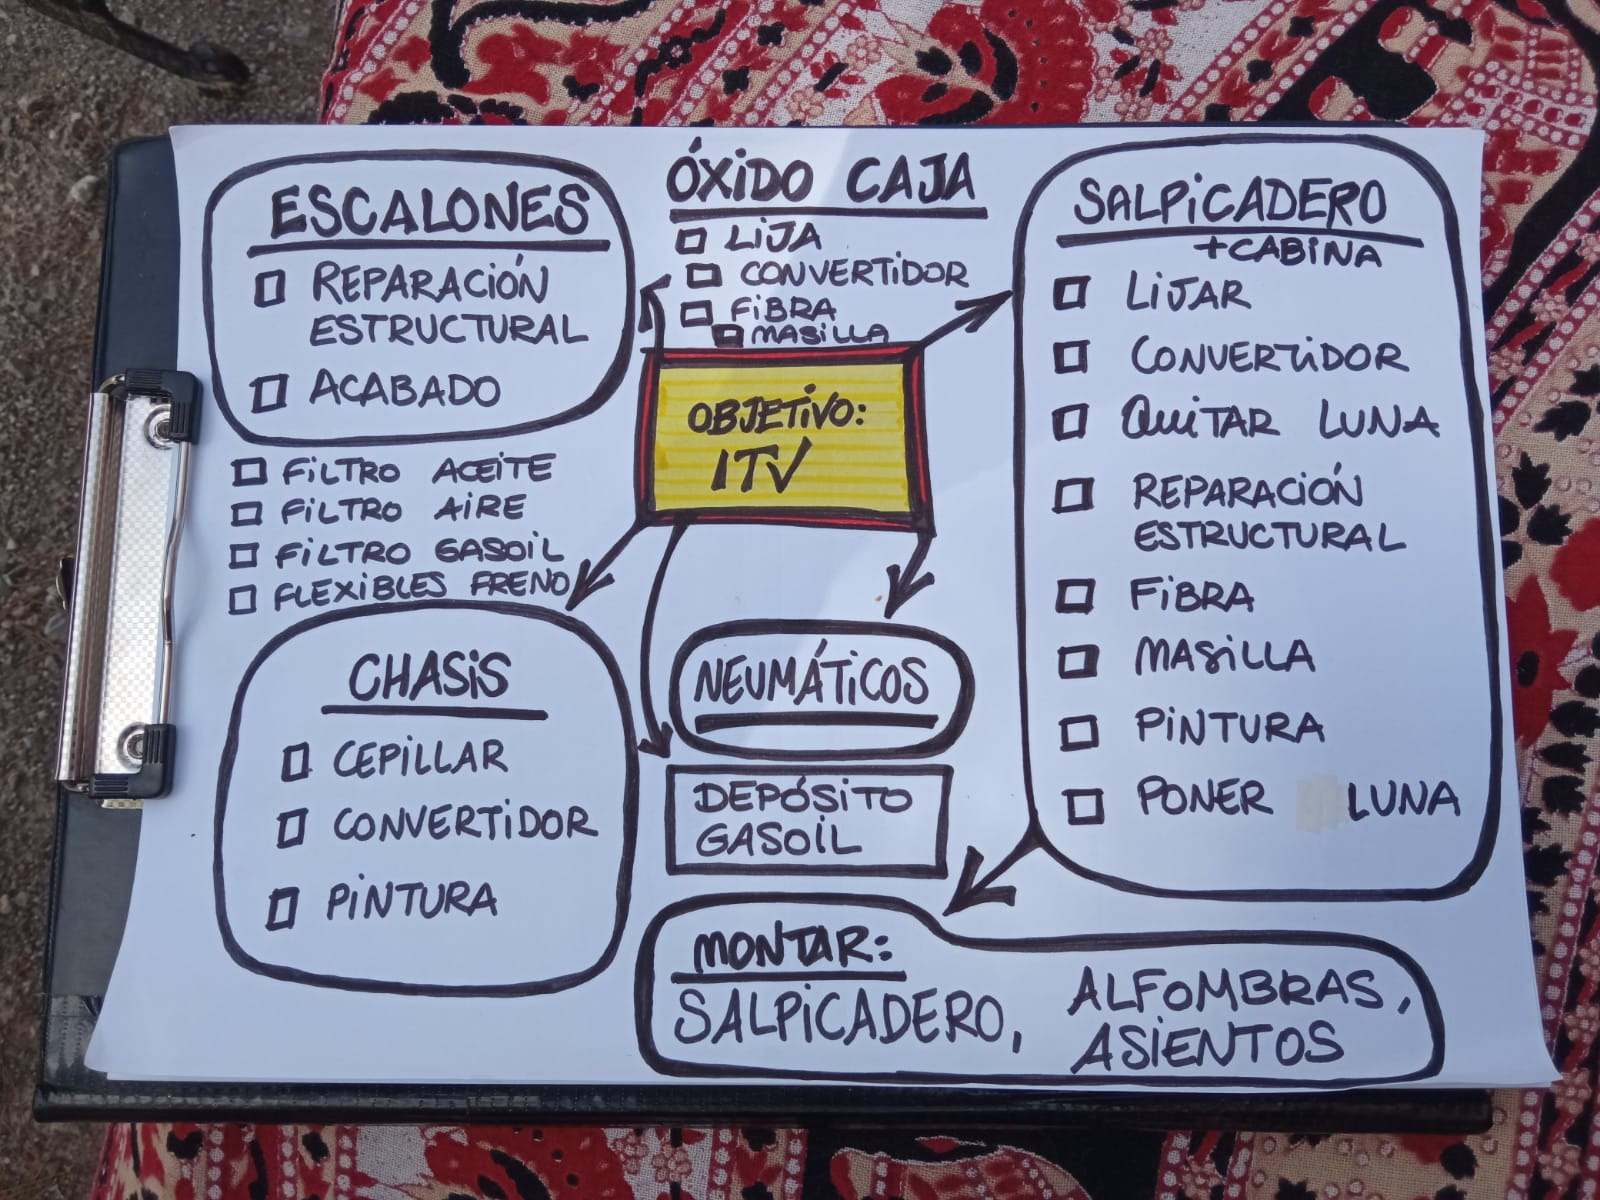 ESCALONES
REPARACIÓN
ESTRUCTURAL
ACABADO
FILTRO ACEITE
FILTRO AIRE
FILTRO GASOIL
FLEXIBLES FRENO
ÓXIDO CAJA
LIJA
CONVERTIDOR
FIBRA
MASILLA
OBJETIVO:
ITV
SALPICADERO
+CABINA
LIJAR
CONVERTIDOR
QUITAR LUNA
REPARACIÓN
ESTRUCTURAL
FIBRA
MASILLA
PINTURA
PONER LUNA
CHASIS
CEPILLAR
CONVERTIDOR
PINTURA
NEUMÁTICOS
DEPÓSITO
GASOIL
MONTAR:
SALPICADERO, ALFOMBRAS,
ASIENTOS